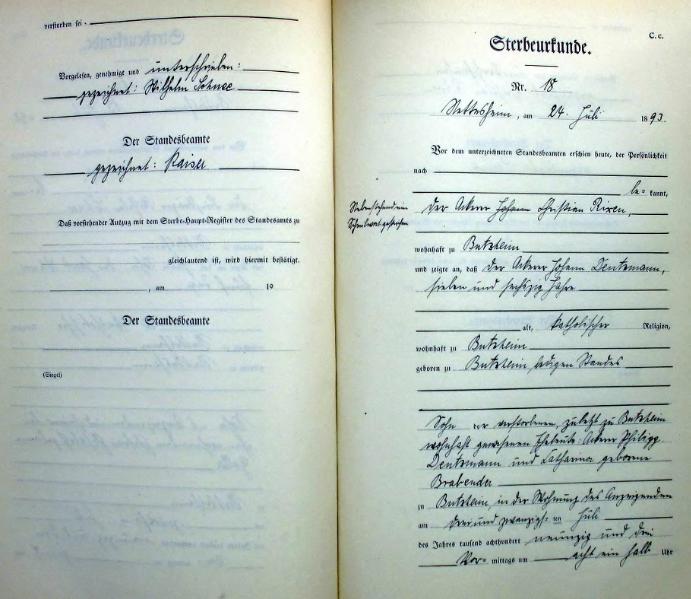 verstorben sei
Vorgelesen, genehmigt und unterschrieben:
gezeichnet: Wilhelm
Der Standesbeamte
gezeichnet: Kaiser
Daß vorstehender Auszug mit dem Sterbe-Haupt-Register des Standesamts zu
gleichlautend ist, wird hiermit bestätigt.
, am 19
Der Standesbeamte
(Siegel)
C. c.
Sterbeurkunde.
Nr. 18
Nettesheim, am 24. Juli 1893.
Vor dem unterzeichneten Standesbeamten erschien heute, der Persönlichkeit
nach
be= kannt,
der Ackerer Johann Christian
wohnhaft zu Butzheim
und zeigte an, daß der Ackerer Johann Dentzmann,
sieben und sechszig Jahre
alt, katholischer Religion,
wohnhaft zu Butzheim
geboren zu Butzheim, ledigen Standes
Sohn der verstorbenen, zuletzt zu Butzheim
wohnhaft gewesenen Eheleute Ackerer Philipp
Dentzmann und Catharina geborene
Brabender
zu Butzheim, in der Wohnung des Anzeigenden
am drei und zwanzigs- ten Juli
des Jahres tausend achthundert neunzig und drei
Vor= mittags um acht ein halb Uhr